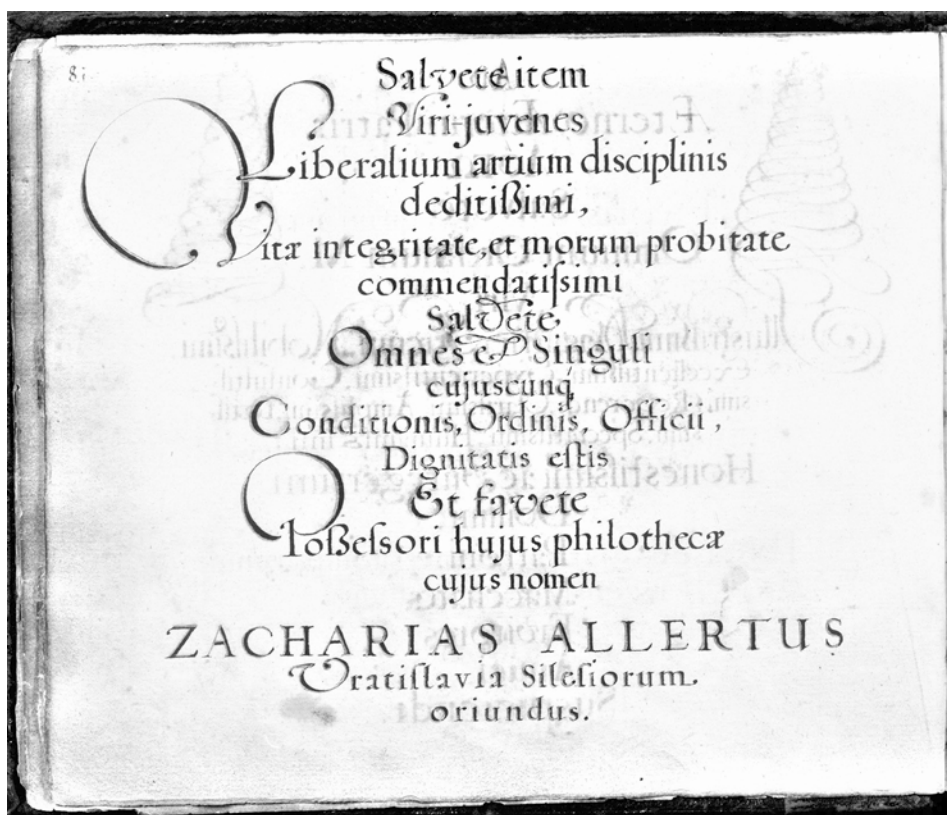 8i
Salvete item
Viri juvenes
Liberalium artium disciplinis
deditißimi,
Vitæ integritate, et morum probitate
commendatiſsimi
Salvete
Omnes et Singuli
cujuscunq́
Conditionis, Ordinis, Officii,
Dignitatis eſtis
Et favete
Poßeſsori hujus philothecæ
cujus nomen
ZACHARIAS ALLERTUS
Vratiſlavia Sileſiorum.
oriundus.